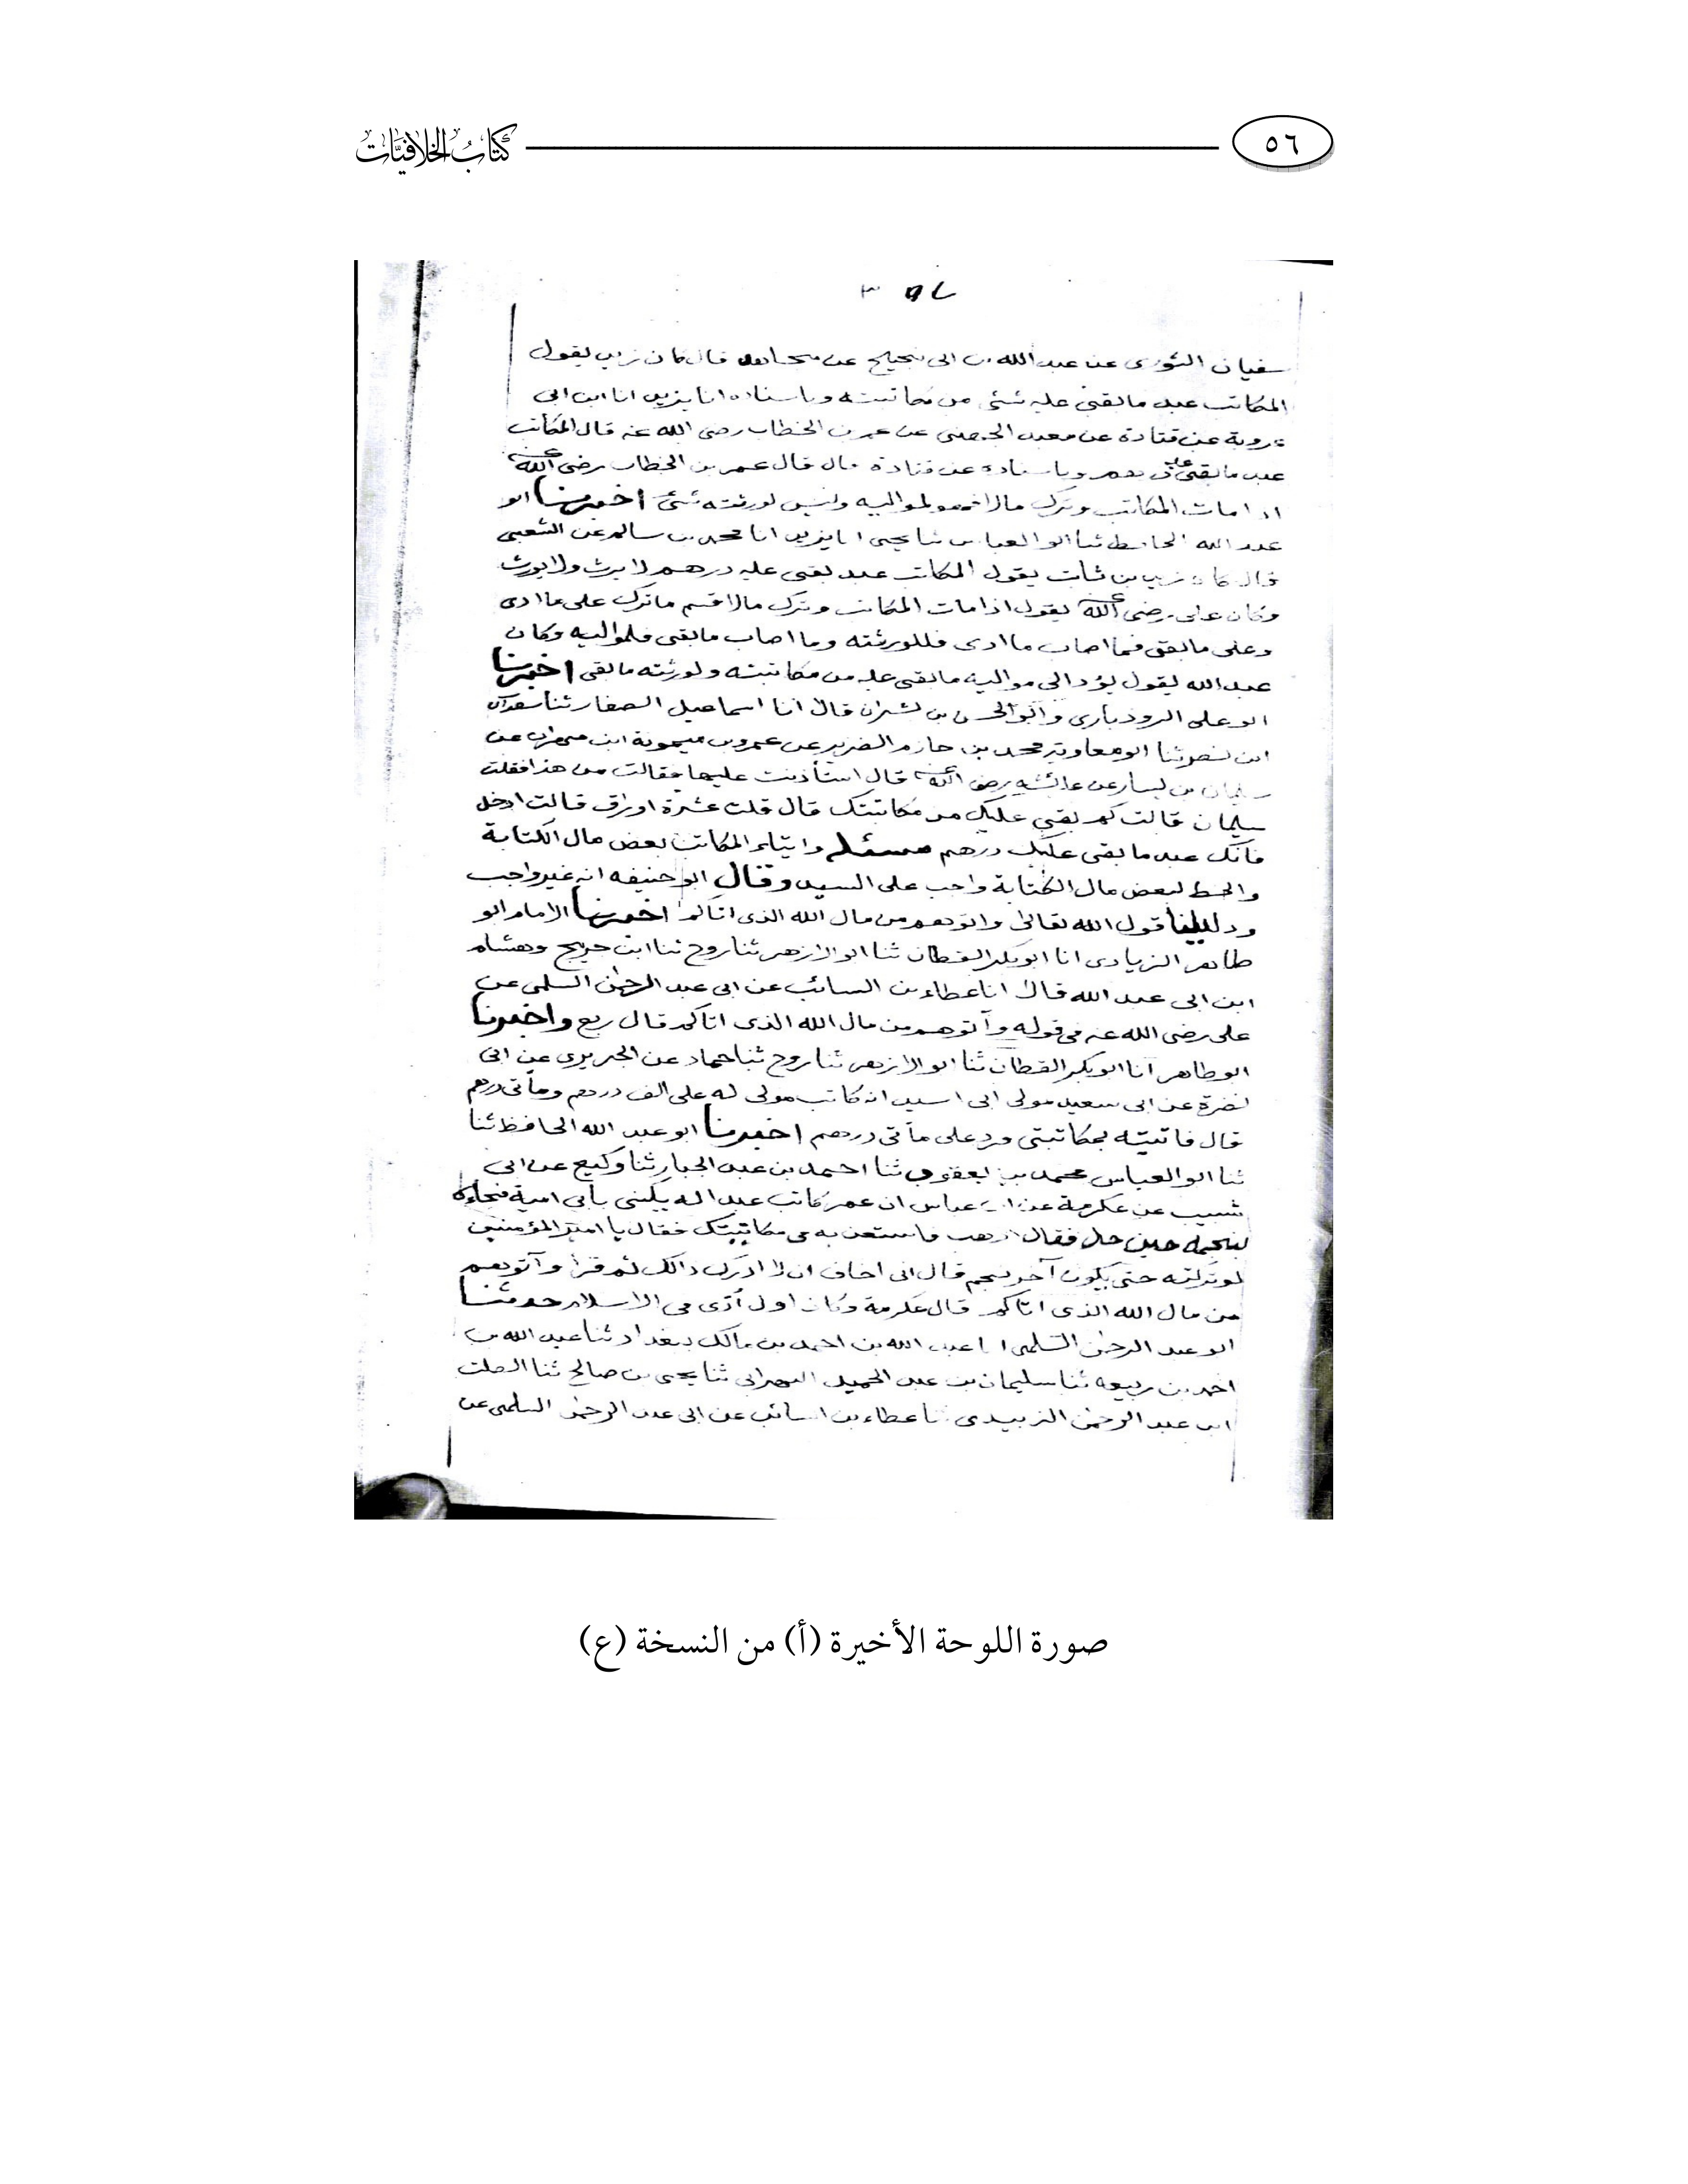 ٥٦
كتاب الخلافيات
سفيان الثوري عن عبد الله بن ابى نجيح عن مجاهد قال كان زيد يقول
المكاتب عبد ما بقي عليه شئ من مكاتبته وباسناده انا يزيد انا ابن ابى
عروبة عن قتادة عن معبد الجهنى عن عمر بن الخطاب رضى الله عنه قال المكاتب
عبد ما بقى عليه درهم وباسناده عن قتادة قال قال عمر بن الخطاب رضى الله عنه
اذا مات المكاتب وترك مالا فهو لمواليه وليس لورثته شئ اخبرنا ابو
عبد الله الحافظ ثنا ابو العباس ثنا يحيى انا يزيد انا محمد بن سالم عن الشعبى
قال كان زيد بن ثابت يقول المكاتب عبد بقى عليه درهم لا يرث ولا يورث
وكان على رضى الله عنه يقول اذا مات المكاتب وترك مالا قسم ما ترك على ما ادى
وعلى ما بقى فما اصاب ما ادى فللورثته وما اصاب ما بقى فلمواليه وكان
عبد الله يقول يؤد الى مواليه ما بقى عليه من مكاتبته ولورثته ما بقى اخبرنا
ابو على الروذبارى وابو الحسن بن بشران قالا انا اسماعيل الصفار ثنا سعدان
ابن نصر ثنا ابو معاوية محمد بن حازم الضرير عن عمرو بن ميمونة ابن مهران عن
سليمان بن يسار عن عائشه رضى الله عنها قال استأذنت عليها فقالت من هذا فقلت
سليمان قالت كم بقى عليك من مكاتبتك قال قلت عشرة اوراق قالت ادخل
فانك عبد ما بقى عليك درهم مسئله وايتاء المكاتب بعض مال الكتابة
والحط لبعض مال الكتابة واجب على السيد وقال ابو حنيفه انه غير واجب
ودليلنا قول الله تعالى واتوهم من مال الله الذى اتاكم اخبرنا الامام ابو
طاهر الزيادى انا ابو بكر القطان ثنا ابو الازهر ثنا روح ثنا ابن جريج وهشام
ابن ابى عبد الله قالا انا عطاء بن السائب عن ابى عبد الرحمٰن السلمى عن
على رضى الله عنه فى قوله وآتوهم من مال الله الذى اتاكم قال ربع واخبرنا
ابو طاهر انا ابو بكر القطان ثنا ابو الازهر ثنا روح ثنا حماد عن الجريرى عن ابى
نضرة عن ابى سعيد مولى ابى اسيد انه كاتب مولى له على الف درهم ومأتى درهم
قال فاتيته بمكاتبتى فرد على مأتى درهم اخبرنا ابو عبد الله الحافظ ثنا
ثنا ابو العباس محمد بن يعقوب ثنا احمد بن عبد الجبار ثنا وكيع عن ابى
شبيب عن عكرمة عن ابن عباس ان عمر كاتب عبدا له يكنى بأبى امية فجاءه
بنجمه حين حل فقال اذهب فاستعن به فى مكاتبتك فقال يا امير المؤمنين
لو تركته حتى يكون آخر نجم قال انى اخاف ان لا ادرك ذالك ثم قرأ وآتوهم
من مال الله الذى اتاكم قال عكرمة وكان اول أدى فى الاسلام حدثنا
ابو عبد الرحمٰن السلمى انا عبد الله بن احمد بن مالك ببغداد ثنا عبد الله بن
احمد بن ربيعه ثنا سليمان بن عبد الحميد البهرانى ثنا يحيى بن صالح ثنا الصلت
ابن عبد الرحمٰن الزبيدى ثنا عطاء بن السائب عن ابى عبد الرحمٰن السلمى عن
صورة اللوحة الأخيرة (أ) من النسخة (ع)